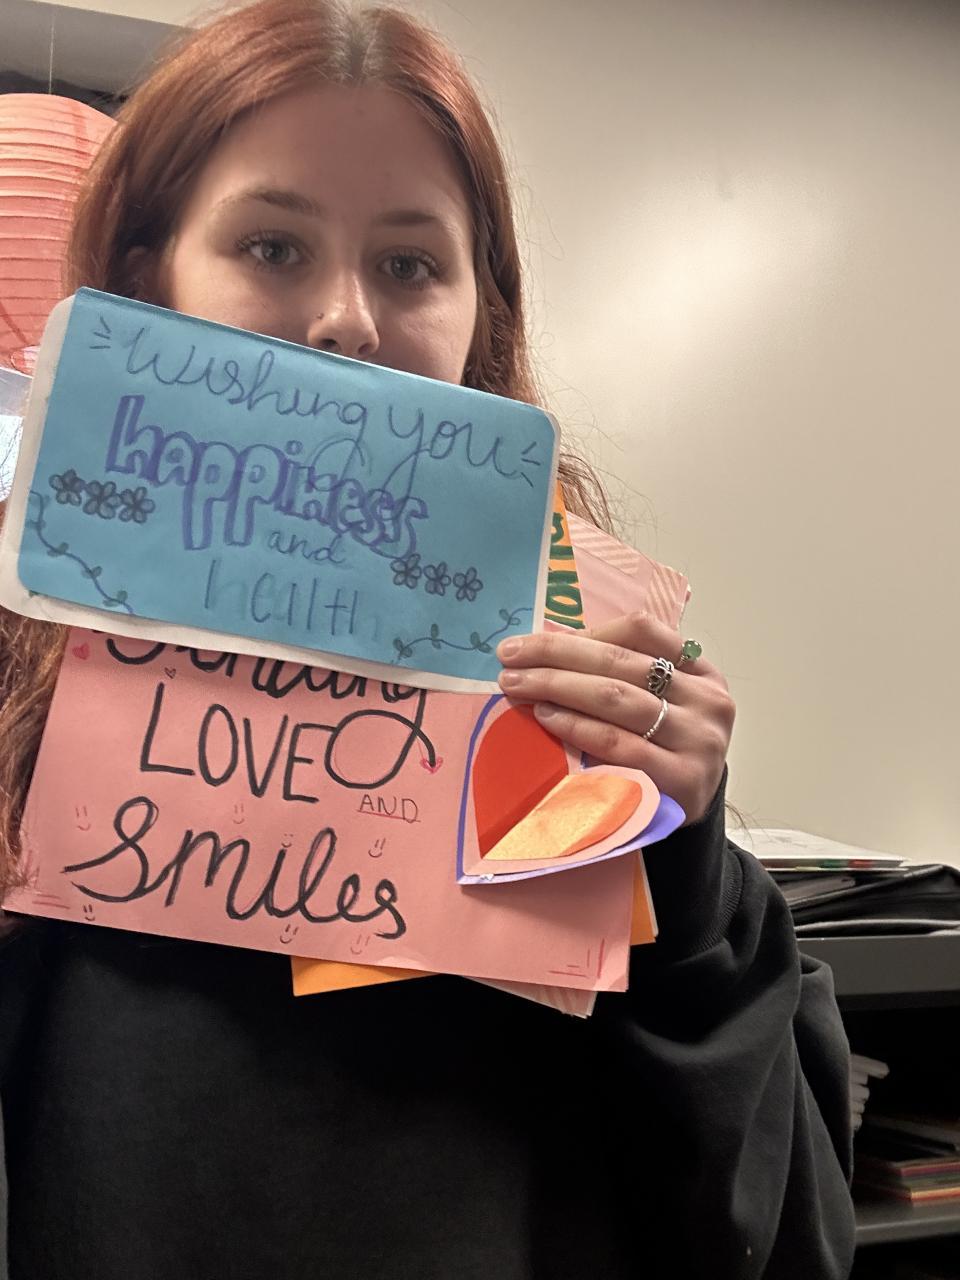 Wishing you
happiness
and
health
Sending
LOVE
AND
Smiles